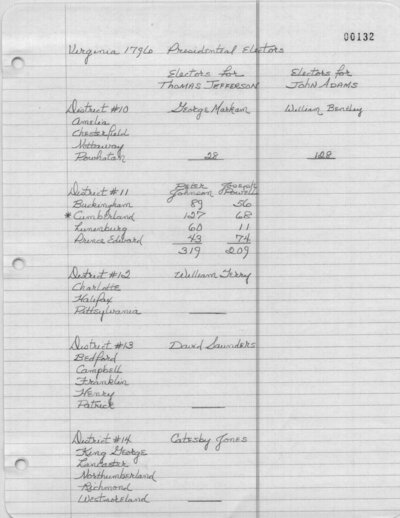 00132
Virginia 1796 Presidential Electors
Electors for THOMAS JEFFERSON Electors for JOHN ADAMS
District #10 George Markam William Bentley
Amelia
Chesterfield
Nottoway
Powhatan 28 128
District #11 Peter Johnson Joseph Powell
Buckingham 89 56
* Cumberland 127 68
Lunenburg 60 11
Prince Edward 43 74
319 209
District #12 William Terry
Charlotte
Halifax
Pittsylvania
District #13 David Saunders
Bedford
Campbell
Franklin
Henry
Patrick
District #14 Catesby Jones
King George
Lancaster
Northumberland
Richmond
Westmoreland